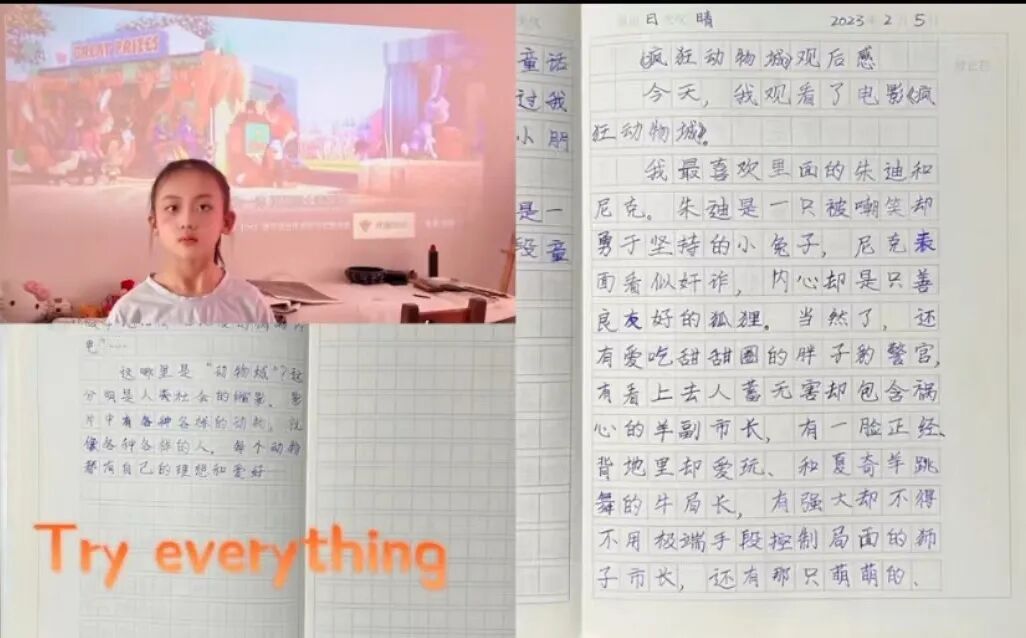 GREAT PRIZES
电”…
这哪里是“动物城”?这
分明是人类社会的缩影。影
片中有各种各样的动物,就
像各种各样的人。每个动物
都有自己的理想和爱好
Try everything
童话
过我
小朋
是一
段童
日 晴 2023 年 2 月 5 日
《疯狂动物城》观后感
今天,我观看了电影《疯
狂动物城》。
我最喜欢里面的朱迪和
尼克。朱迪是一只被嘲笑却
勇于坚持的小兔子,尼克表
面看似奸诈,内心却是只善
良友好的狐狸。当然了,还
有爱吃甜甜圈的胖子豹警官,
有看上去人蓄无害却包含祸
心的羊副市长,有一脸正经、
背地里却爱玩、和夏奇羊跳
舞的牛局长,有强大却不得
不用极端手段控制局面的狮
子市长,还有那只萌萌的、